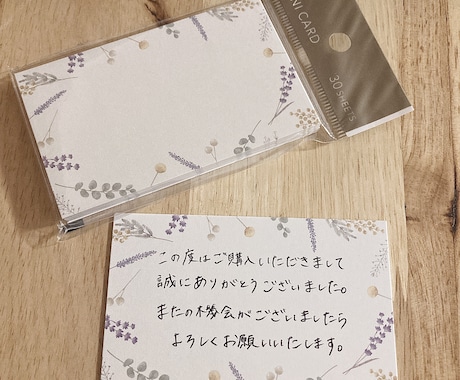 NI CARD
30 SHEETS
この度はご購入いただきまして
誠にありがとうございました。
またの機会がございましたら
よろしくお願いいたします。